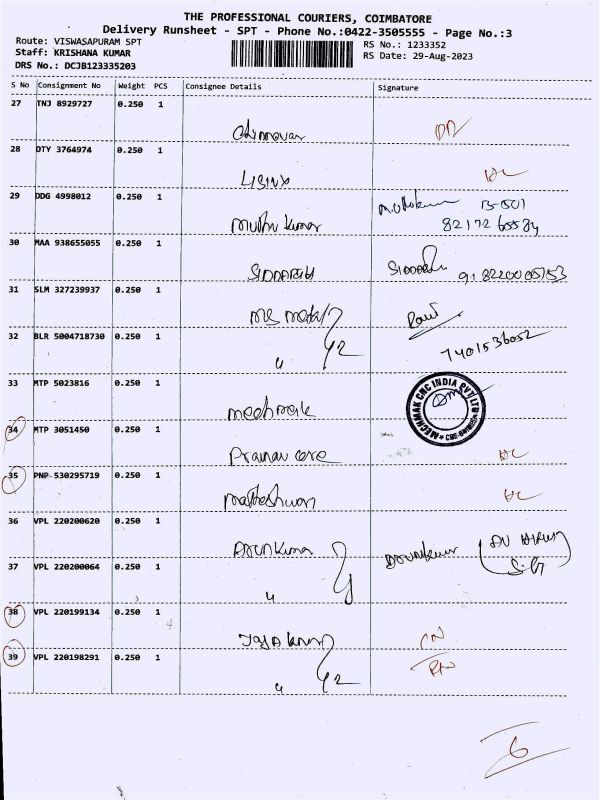 THE PROFESSIONAL COURIERS, COIMBATORE
Delivery Runsheet - SPT - Phone No.:0422-3505555 - Page No.:3
Route: VISWASAPURAM SPT
RS No.: 1233352
Staff: KRISHANA KUMAR
RS Date: 29-Aug-2023
DRS No.: DCJB123335203
S No Consignment No Weight PCS Consignee Details Signature
27 TNJ 8929727 0.250 1
28 DTY 3764974 0.250 1
29 DDG 4998012 0.250 1
B-501
Muthu Kumar
30 MAA 938655055 0.250 1
SIDDARTH
31 SLM 327239937 0.250 1
MS metal
32 BLR 5004718730 0.250 1
7401536052
33 MTP 5023816 0.250 1
mechmak
MECHMAK CNC INDIA PVT LTD
34 MTP 3051450 0.250 1
Pranav care
35 PNP 530295719 0.250 1
36 VPL 220200620 0.250 1
Arun Kumar
37 VPL 220200064 0.250 1
38 VPL 220199134 0.250 1
39 VPL 220198291 0.250 1
6